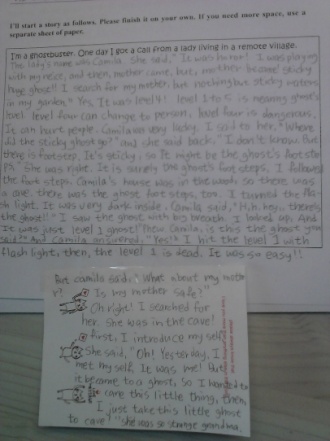 I'll start a story as follows. Please finish it on your own. If you need more space, use a
separate sheet of paper.
I'm a ghostbuster. One day I got a call from a lady living in a remote village.
The lady's name was Camila. She said, "It was horror! I was playing
with my niece, and then, mother came, but, mother became sticky
huge ghost!! I search for my mother, but nothing but sticky waters
in my garden." Yes, It was level 4! level 1 to 5 is meaning ghost's
level. level four can change to person, level four is dangerous.
It can hurt people. Camila was very lucky. I said to her, "Where
did the sticky ghost go?" and she said back, "I don't know. But
there is footstep. It's sticky, so It might be the ghost's foot ste
ps." She was right. It is surely the ghost's foot steps, I followed
the foot steps. Camila's house was in the wood, so there was
a cave. there was the ghost foot steps, too. I turned the fla
sh light. It was very dark inside. Camila said, "H..h..hey.. there's
the ghost!!" I saw the ghost with big breath. I looked up. And
It was just level 1 ghost! "Phew. Camila, is this the ghost you
said?" And Camila answered, "Yes!" I hit the level 1 with
flash light, then, the level 1 is dead. It was so easy!!
But camila said, "What about my mothe
r? Is my mother safe?"
Oh right! I searched for
her. She was in the cave!
first, I introduce my self.
She said, "Oh! Yesterday, I
met my self. It was me! But
it became to a ghost, so I wanted to
care this little thing, then,
I just take this little ghost
to care!" she was so strange grandma.